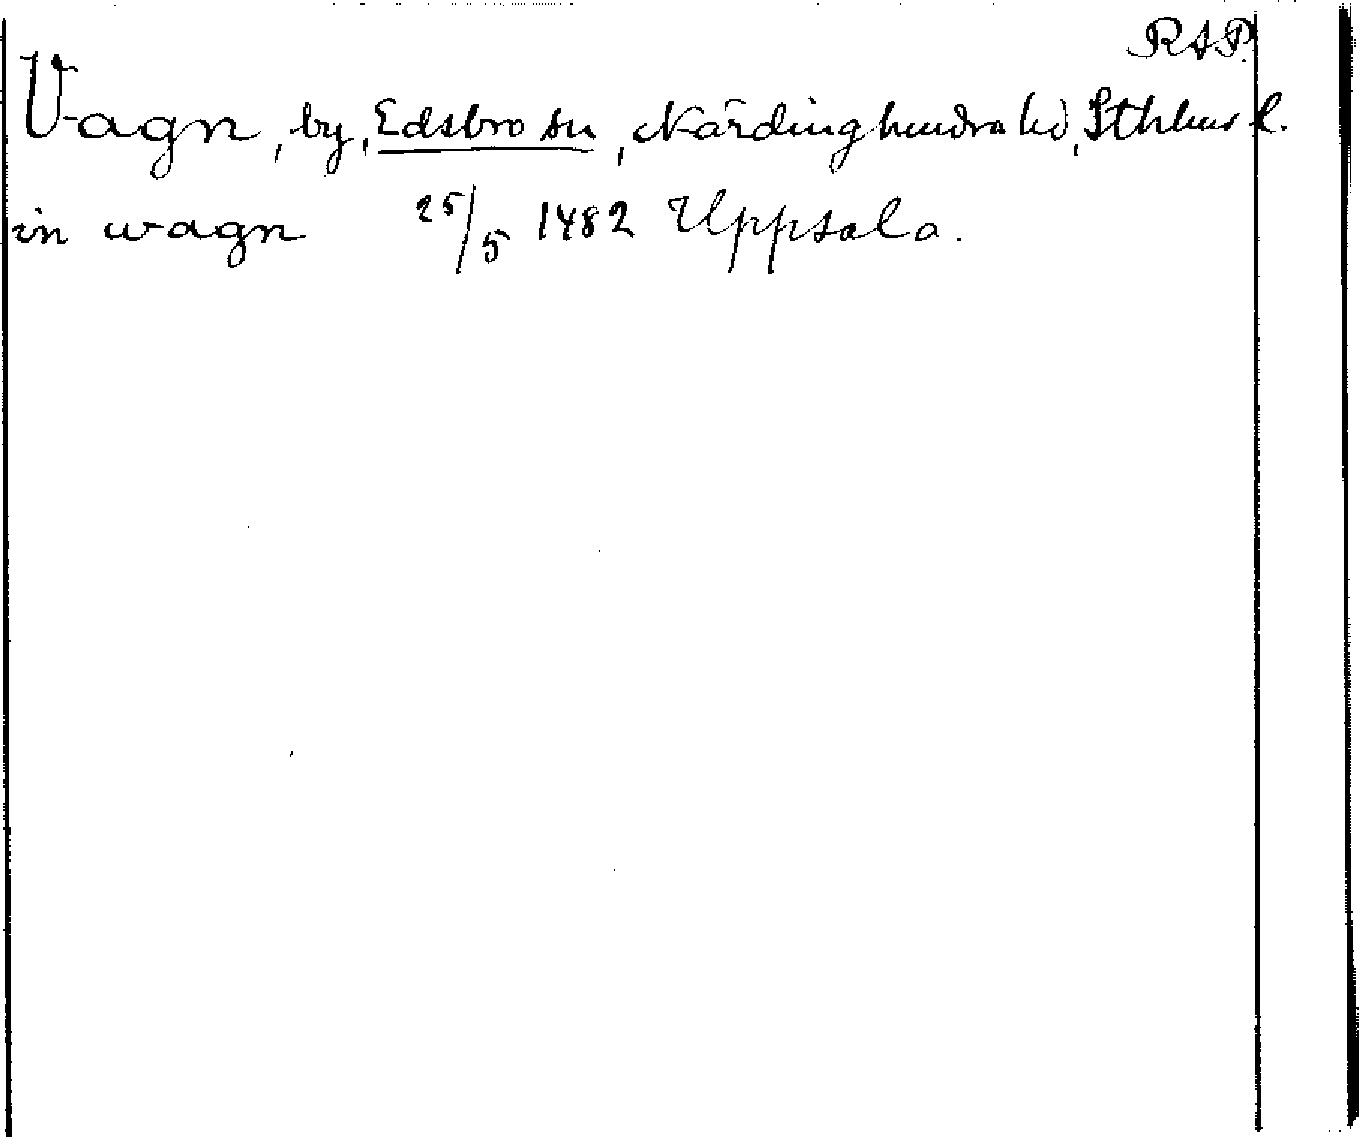 RAP.
Vagn, by, Edsbro sn, Närdinghundra hd, Sthlms l.
in wagn 25/5 1482 Uppsala.